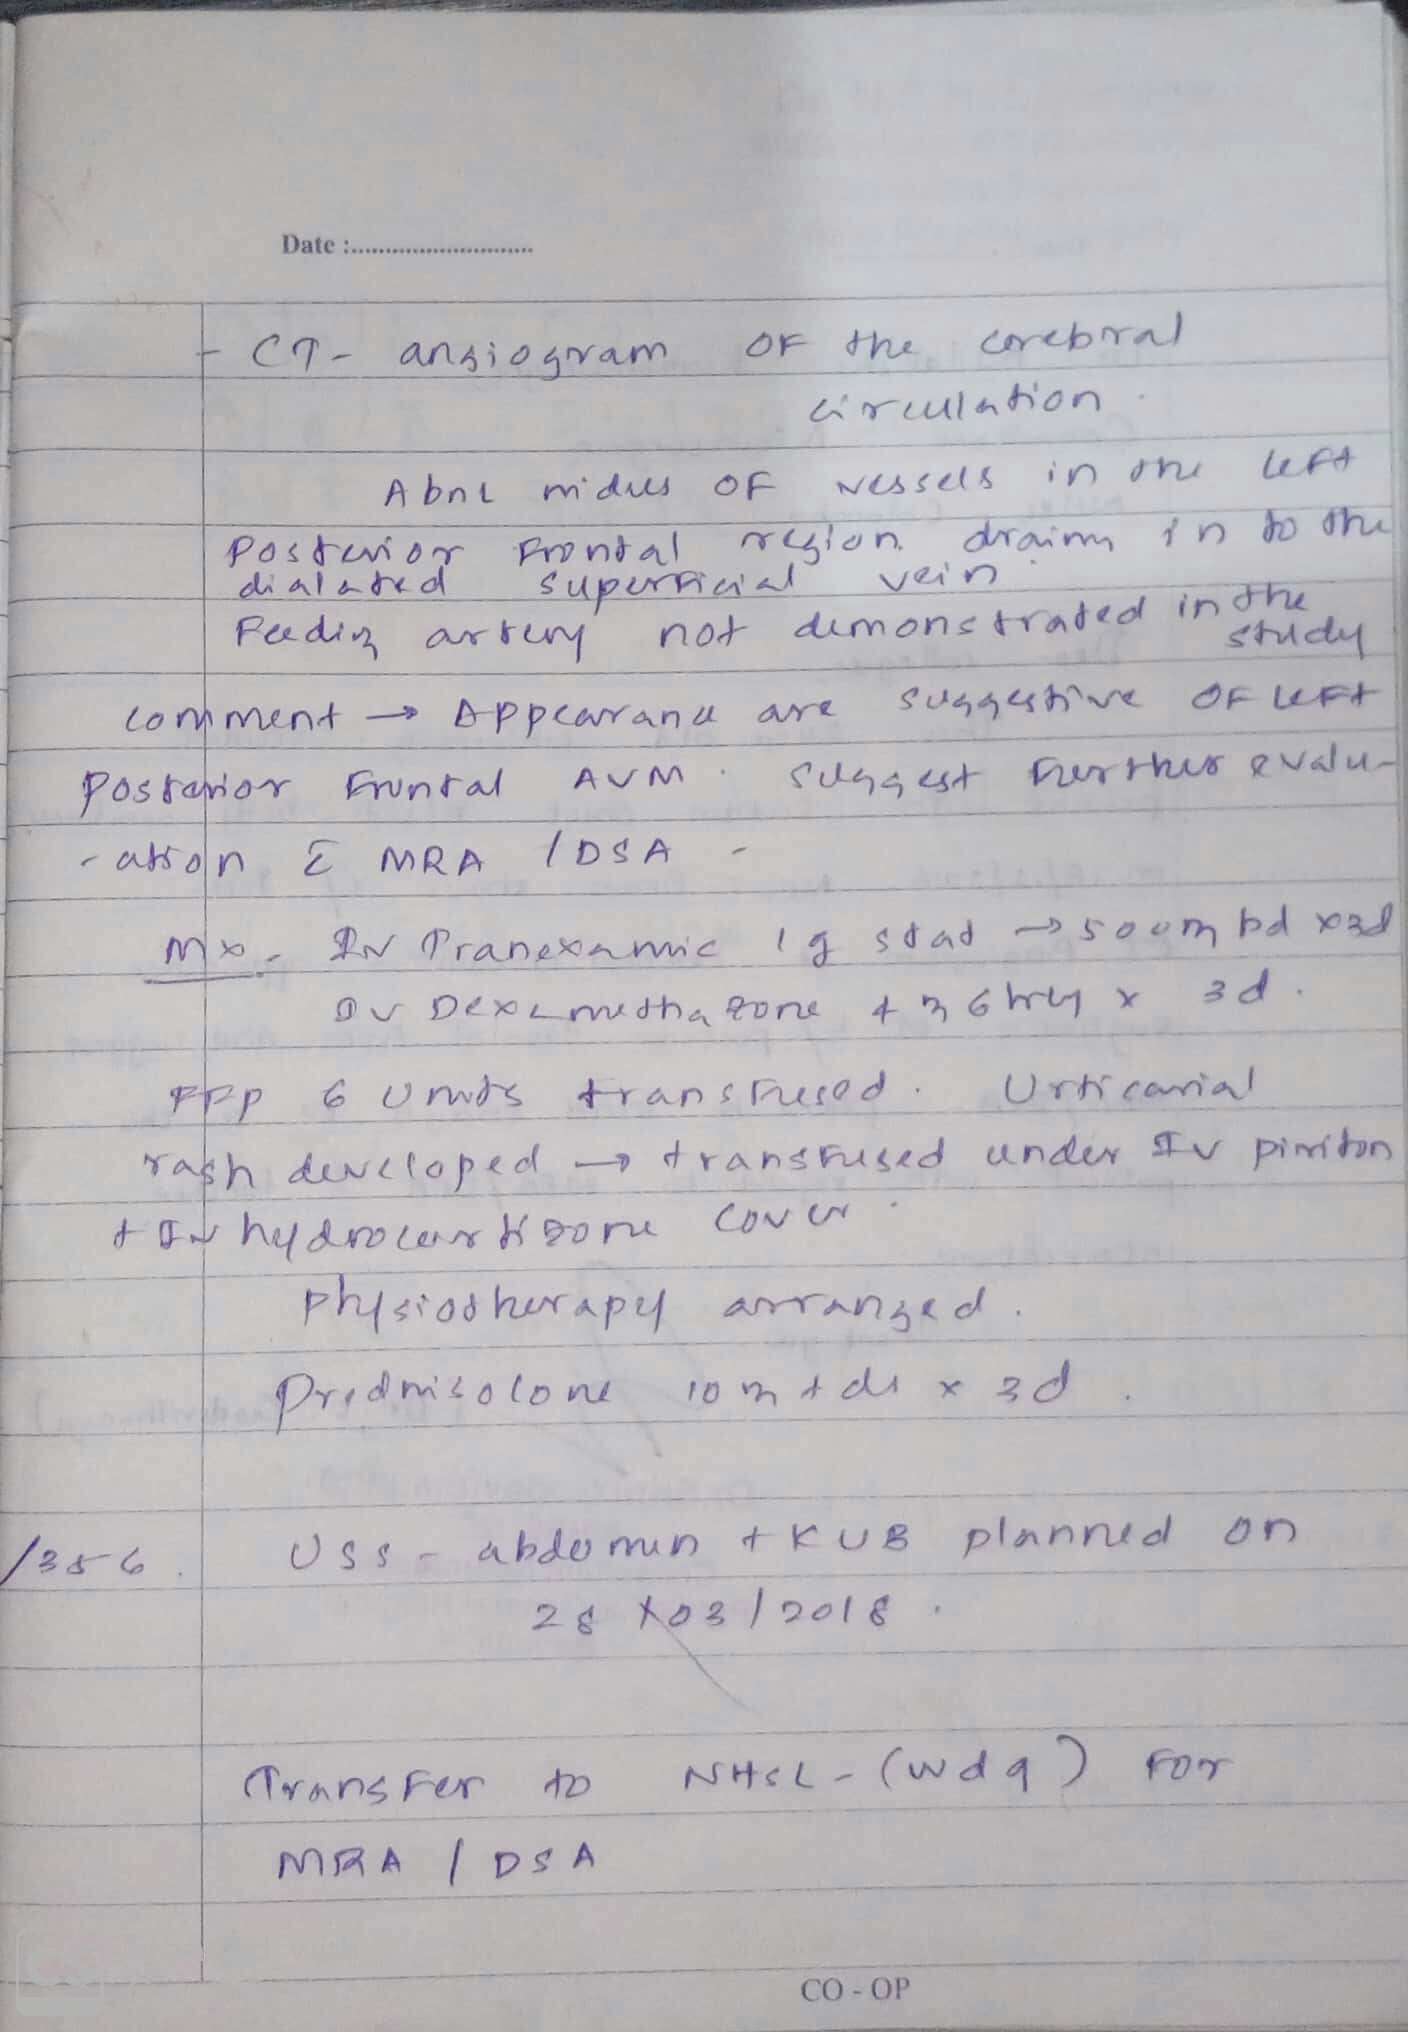 Date :............................
- CT- angiogram OF the cerebral
circulation.
Abnl nidus OF vessels in the left
Posterior Frontal region. draining in to the
dialated superficial vein.
Feeding artery not demonstrated in the
study
comment → Appearance are suggestive OF left
Posterior Frontal AVM. suggest Further evalu-
-ation c̄ MRA / DSA -
Mx - IV Tranexamic 1g stat → 500mg bd x3d
IV Dexamethazone 4mg 6hrly x 3d.
FFP 6 Units transfused. Urticarial
rash developed → transfused under IV piriton
+ IV hydrocortizone cover.
Physiotherapy arranged.
Prednisolone 10mg tds x 3d.
/356. USS - abdomen + KUB planned on
28/03/2018.
Transfer to NHSL - (wd 9) For
MRA / DSA
CO - OP